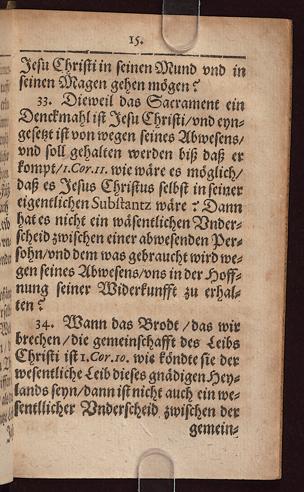 15.
Jesu Christi in seinen Mund vnd in
seinen Magen gehen mögen?
33. Dieweil das Sacrament ein
Denckmahl ist Jesu Christi/vnd eyn-
gesetzt ist von wegen seines Abwesens/
vnd soll gehalten werden biß daß er
kompt/1.Cor.11. wie wäre es möglich/
daß es Jesus Christus selbst in seiner
eigentlichen Substantz wäre? Dann
hat es nicht ein wäsentlichen Vnder-
scheid zwischen einer abwesenden Per-
sohn/vnd dem was gebraucht wird we-
gen seines Abwesens/vns in der Hoff-
nung seiner Widerkunfft zu erhal-
ten?
34. Wann das Brodt/das wir
brechen/die gemeinschafft des Leibs
Christi ist 1.Cor.10. wie köndte sie der
wesentliche Leib dieses gnädigen Hey-
lands seyn/dann ist nicht auch ein we-
sentllicher Vnderscheid zwischen der
gemein-